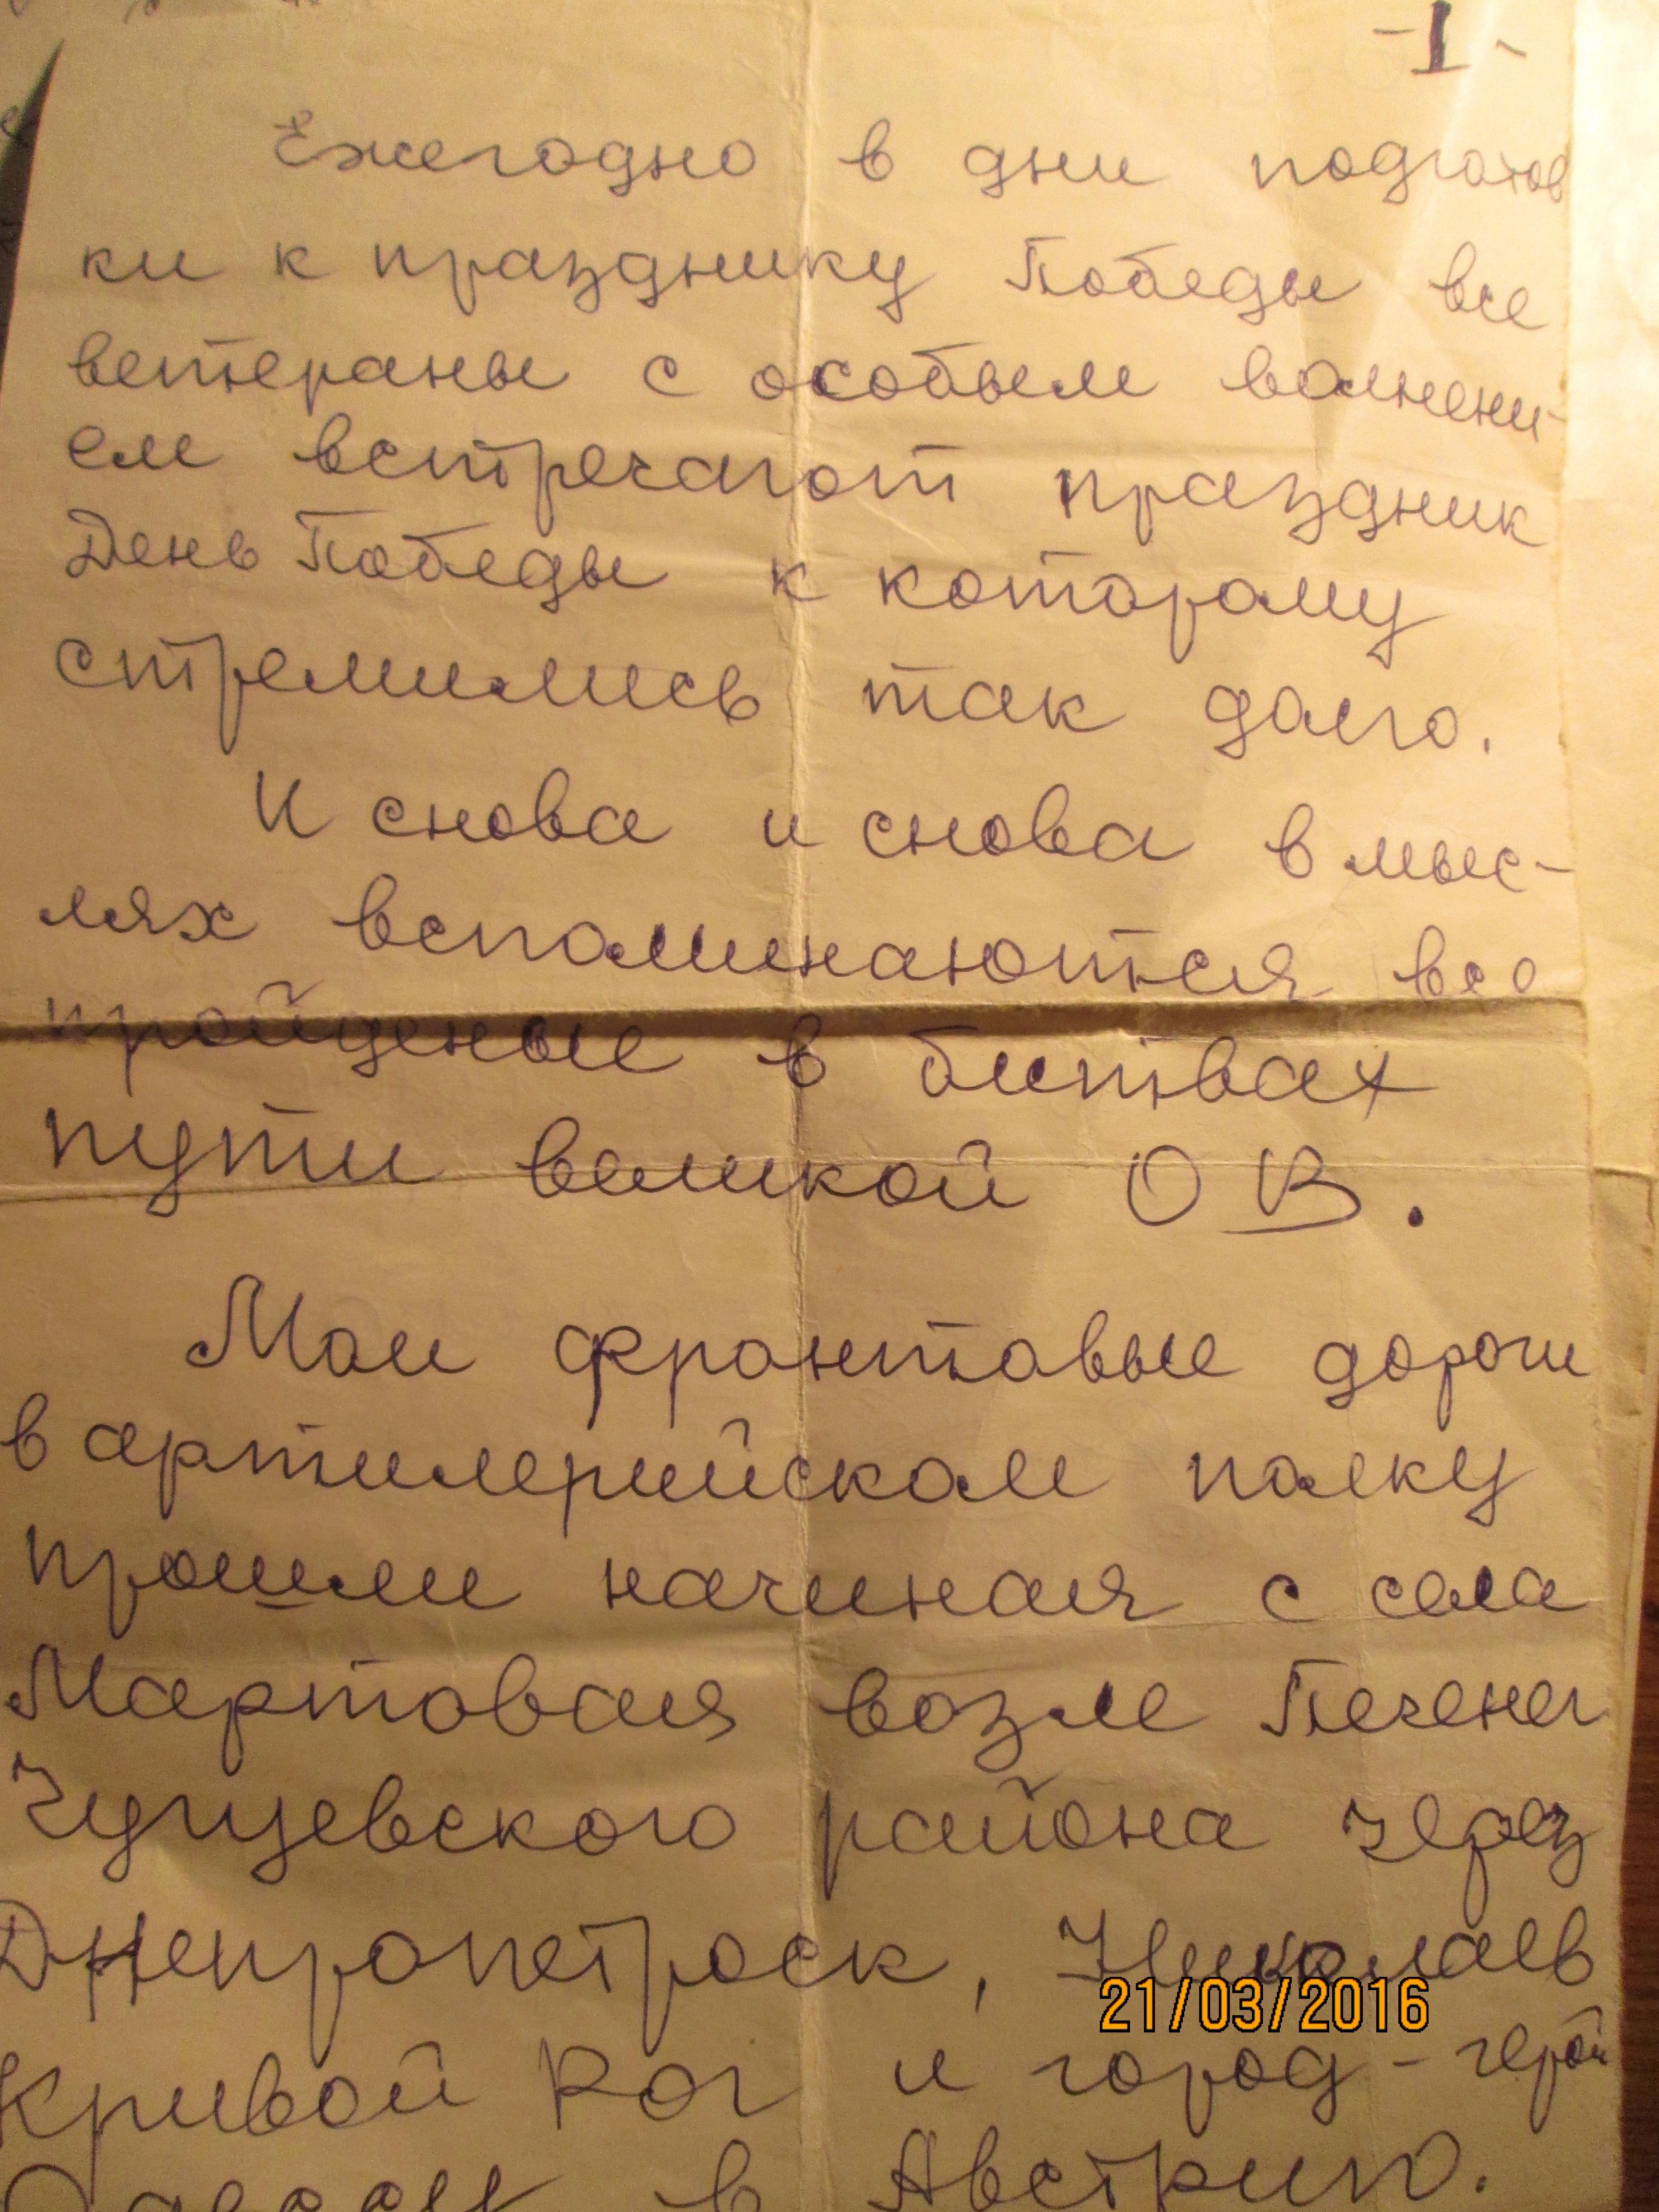 -I-
Ежегодно в дни подготов
ки к празднику Победы все
ветераны с особым волнени-
ем встречают праздник
День Победы к которому
стремились так долго.
И снова и снова в мыс-
лях вспоминаются все
пройденые в битвах
пути великой ОВ.
Мои фронтовые дороги
в артилерийском полку
прошли начиная с села
Мартовая возле Печенег
Чугуевского района через
Днепропетроск, Николаев
21/03/2016
Кривой Рог и город-герой
Одессу в Австрию.